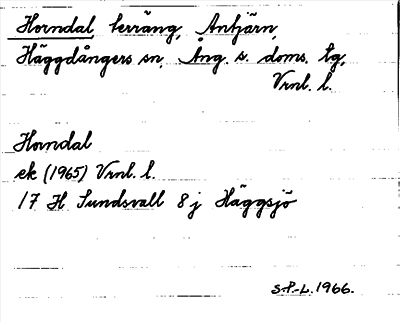 Horndal, terräng, Antjärn,
Häggdångers sn, Ång. s. doms. tg,
Vrnl. l.
Horndal
ek (1965) Vrnl. l.
17 H Sundsvall 8 j Häggsjö
S.P.-L. 1966.